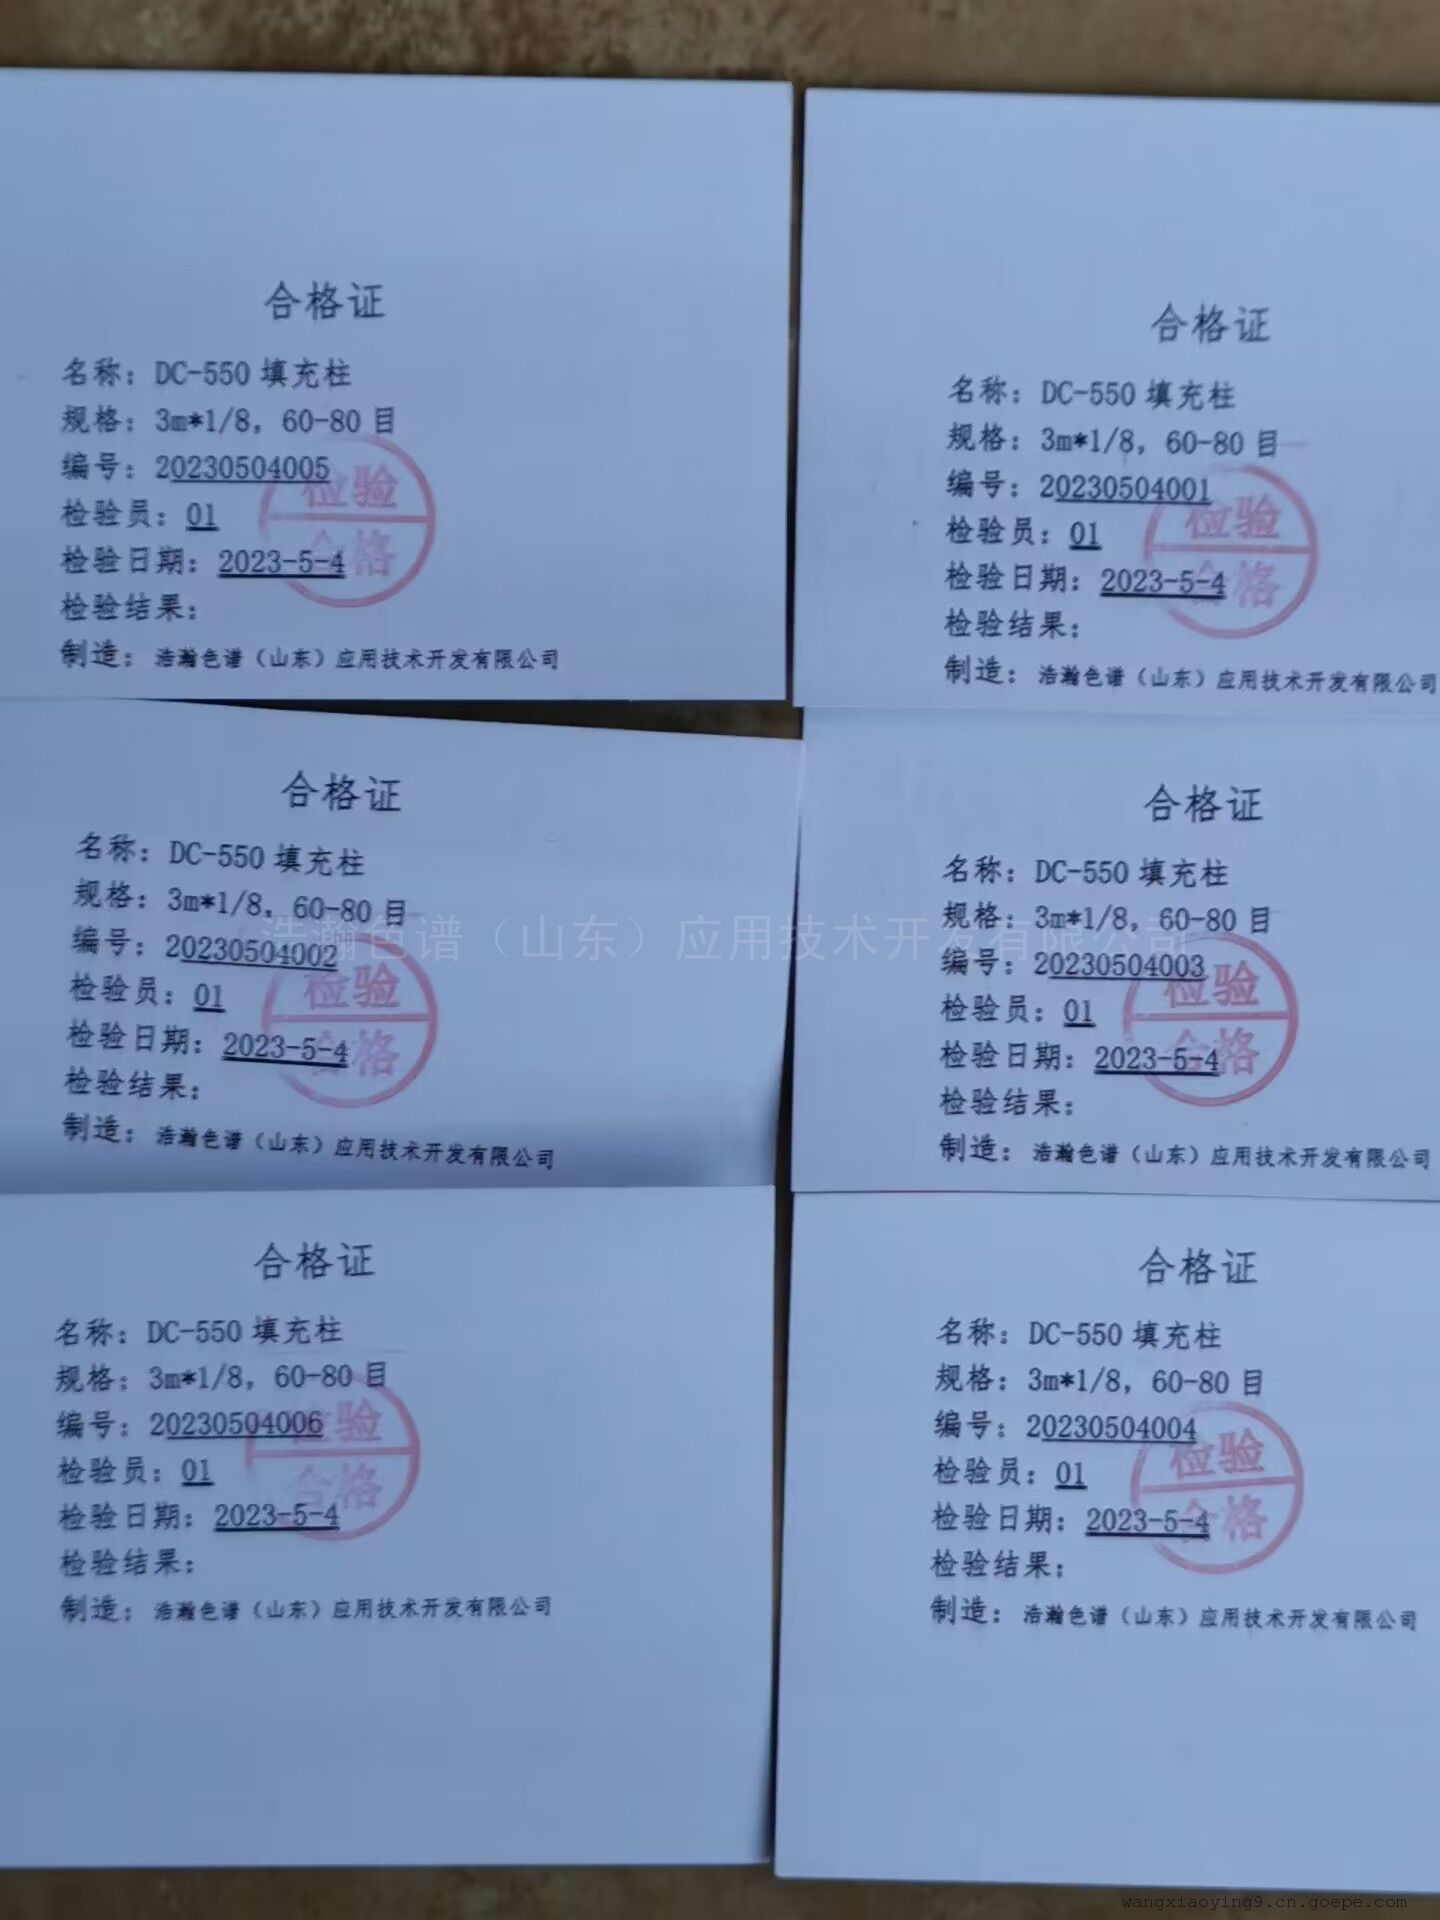 合格证
名称：DC-550 填充柱
规格：3m*1/8，60-80 目
编号：20230504005
检验员：01
检验日期：2023-5-4
检验结果：
制造：浩瀚色谱（山东）应用技术开发有限公司
检验
合格
合格证
名称：DC-550 填充柱
规格：3m*1/8，60-80 目
编号：20230504001
检验员：01
检验日期：2023-5-4
检验结果：
制造：浩瀚色谱（山东）应用技术开发有限公司
检验
合格
合格证
名称：DC-550 填充柱
规格：3m*1/8，60-80 目
编号：20230504002
检验员：01
检验日期：2023-5-4
检验结果：
制造：浩瀚色谱（山东）应用技术开发有限公司
检验
合格
合格证
名称：DC-550 填充柱
规格：3m*1/8，60-80 目
编号：20230504003
检验员：01
检验日期：2023-5-4
检验结果：
制造：浩瀚色谱（山东）应用技术开发有限公司
检验
合格
浩瀚色谱（山东）应用技术开发有限公司
合格证
名称：DC-550 填充柱
规格：3m*1/8，60-80 目
编号：20230504006
检验员：01
检验日期：2023-5-4
检验结果：
制造：浩瀚色谱（山东）应用技术开发有限公司
检验
合格
合格证
名称：DC-550 填充柱
规格：3m*1/8，60-80 目
编号：20230504004
检验员：01
检验日期：2023-5-4
检验结果：
制造：浩瀚色谱（山东）应用技术开发有限公司
检验
合格
wangxiaoying9.cn.goepe.com